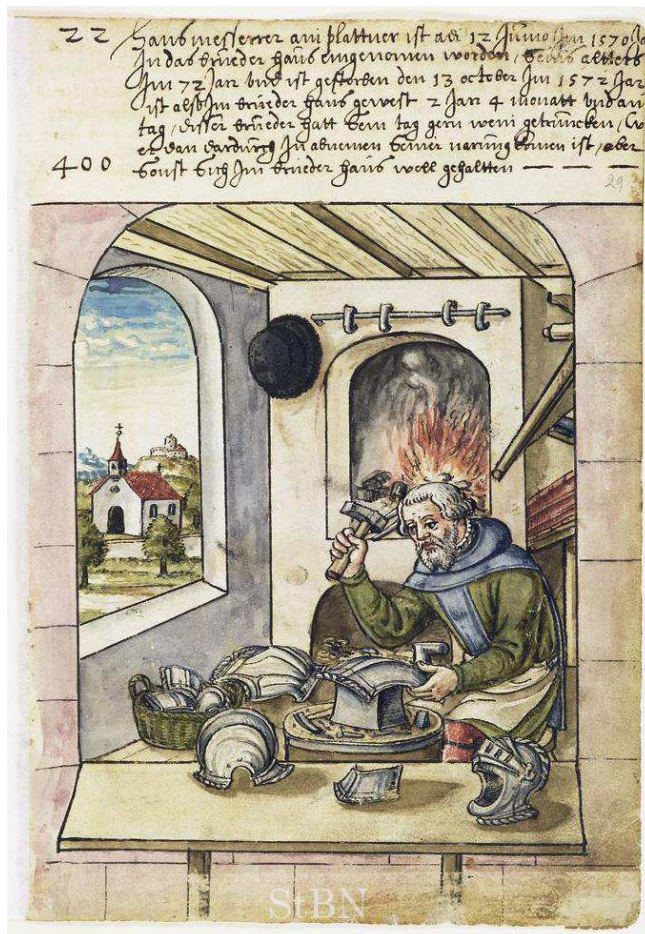 22 Hans messerrer ain plattner ist adi 12 Junio Im 1570 Ja
In das brueder haus eingenomen worden, seins alltters
Im 72 Jar vnd ist gestorben den 13 october Im 1572 Jar
ist also Im brueder haus gewest 2 Jarr 4 monatt vnd ain
tag, disser brueder hatt sein tag gern wein getruncken,
er dan dardurch In abnemen seiner narung komen ist, aber
400 sonst sich Im brueder haus woll gehaltten — — —
29
StBN